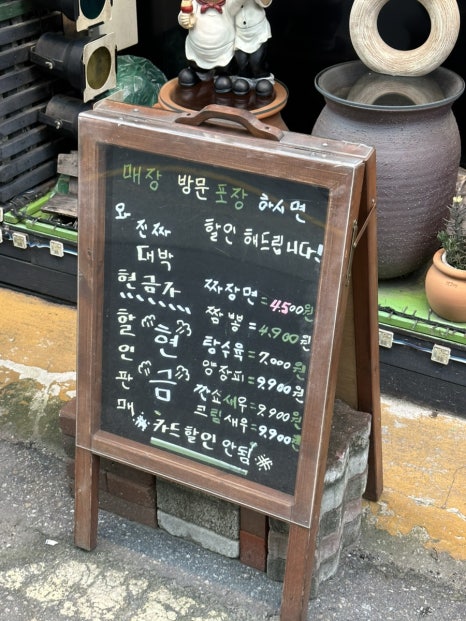 매장 방문 포장 하시면
할인 해드립니다!
와 진짜 대박
현금가
할인판매
현금
짜장면 = 4.500원
짬뽕 = 4.900원
탕수육 = 7.000원
양장피 = 9.900원
깐쇼새우 = 9.900원
크림새우 = 9.900원
카드할인 안됨